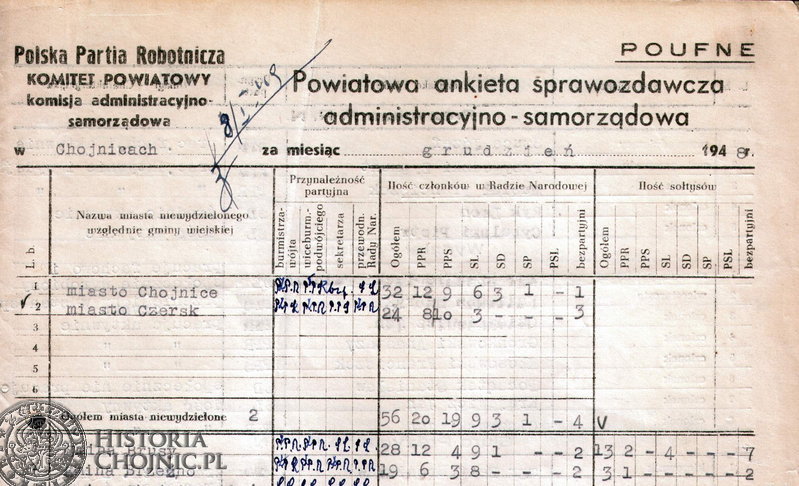 Polska Partia Robotnicza
KOMITET POWIATOWY
komisja administracyjno-
samorządowa
POUFNE
Powiatowa ankieta sprawozdawcza
administracyjno-samorządowa
w Chojnicach za miesiąc grudzień 1948r.
L. b.
Nazwa miasta niewydzielonego
względnie gminy wiejskiej
Przynależność
partyjna
burmistrza-
wójta
wiceburm.-
podwójciego
sekretarza
przewodn.
Rady Nar.
Ilość członków w Radzie Narodowej
Ogółem PPR PPS SL SD SP PSL bezpartyjni
Ilość sołtysów
Ogółem PPR PPS SL SD SP PSL bezpartyjni
1 miasto Chojnice 32 12 9 6 3 1 - 1
2 miasto Czersk 24 8 10 3 - - - 3
3
4
5
6
Ogółem miasta niewydzielone 2 56 20 19 9 3 1 - 4
Brusy 28 12 4 9 1 - - 2 13 2 - 4 - - - 7
Brzeźno 19 6 3 8 - - - 2 3 1 - - - - - 2
HISTORIA
CHOJNIC.PL